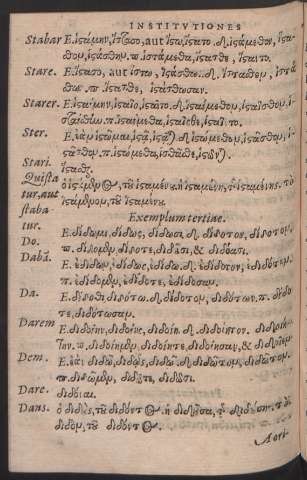 INSTITVTIONES
Stabar E. ἱστάμην, ἵστασο, aut ἵστω, ἵστατο. Δ. ἱστάμεθον, ἵστα-
θον, ἱστάσθην. π. ἱστάμεθα, ἵστασθε, ἵσταντο.
Stare. E. ἵστασο, aut ἵστω, ἱστάσθω. Δ. ἵστασθον, ἱστά
σθων. π. ἵστασθε, ἱστάσθωσαν.
Starer. E. ἱσταίμην, ἱσταῖο, ἱσταῖτο. Δ. ἱσταίμεθον, ἱσταῖσθον, ἱ-
σταίσθην. π. ἱσταίμεθα, ἱσταῖσθε, ἱσταῖντο.
Ster. E. ἐὰν ἱστῶμαι, ἱστᾷ, ἱστᾶται. Δ. ἱστώμεθον, ἱστᾶσθον, ἱ-
στᾶσθον. π. ἱστώμεθα, ἱστᾶσθε, ἱστῶνται.
Stari. ἵστασθαι.
Quista ὁ ἱστάμενος, τοῦ ἱσταμένου. ἡ ἱσταμένη, τῆς ἱσταμένης. τὸ
tur, aut ἱστάμενον, τοῦ ἱσταμένου.
staba
tur. Exemplum tertiae.
Do. E. δίδωμι, δίδως, δίδωσι. Δ. δίδοτον, δίδοτον.
π. δίδομεν, δίδοτε, διδόασι, & διδοῦσι.
Dabā. E. ἐδίδων, ἐδίδως, ἐδίδω. Δ. ἐδίδοτον, ἐδιδότην.
π. ἐδίδομεν, ἐδίδοτε, ἐδίδοσαν.
Da. E. δίδοθι, διδότω. Δ. δίδοτον, διδότων. π. δίδο
τε, διδότωσαν.
Darem E. διδοίην, διδοίης, διδοίη. Δ. διδοίητον, διδοιή-
την. π. διδοίημεν, διδοίητε, διδοίησαν, & διδοῖεν.
Dem. E. ἐὰν διδῶ, διδῷς, διδῷ. Δ. διδῶτον, διδῶτον.
π. διδῶμεν, διδῶτε, διδῶσι.
Dare. διδόναι.
Dans. ὁ διδοὺς, τοῦ διδόντος. ἡ διδοῦσα, τῆς διδούσης. τὸ
διδὸν, τοῦ διδόντος.
Aori-